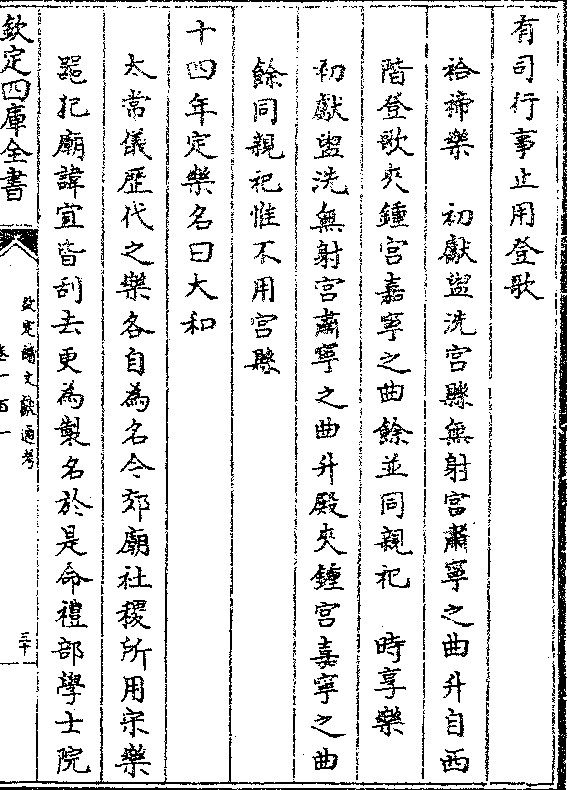 有司行事止用登歌
祫禘樂　初獻盥洗宫縣無射宫肅寧之曲升自西
階登歌夾鍾宫嘉寧之曲餘並同親祀　時享樂
初獻盥洗無射宫肅寧之曲升殿夾鍾宫嘉寧之曲
餘同親祀惟不用宫縣
十四年定樂名曰大和
太常儀歴代之樂各自為名今郊廟社稷所用宋樂
器犯廟諱宜皆刮去更為製名於是命禮部學士院
欽定四庫全書
欽定續文獻通考
卷一百一
三十